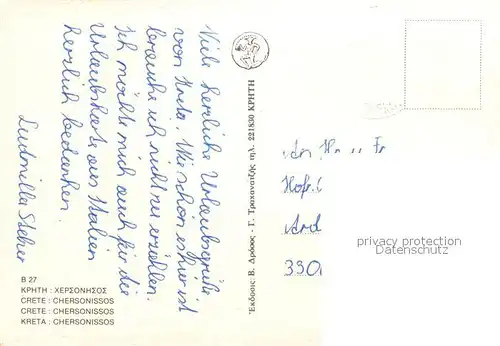 Viele herzliche Urlaubsgrüße
von Kreta. Wie schön es hier ist
brauche ich nicht zu erzählen.
Ich möchte mich auch für die
Urlaubskarte aus Italien
herzlich bedanken.
Ludmilla
B 27
ΚΡΗΤΗ : ΧΕΡΣΟΝΗΣΟΣ
CRETE : CHERSONISSOS
CRETE : CHERSONISSOS
KRETA : CHERSONISSOS
Ἐκδόσεις Β. Δρόσος - Γ. τηλ. 221830 ΚΡΗΤΗ
privacy protection
Datenschutz